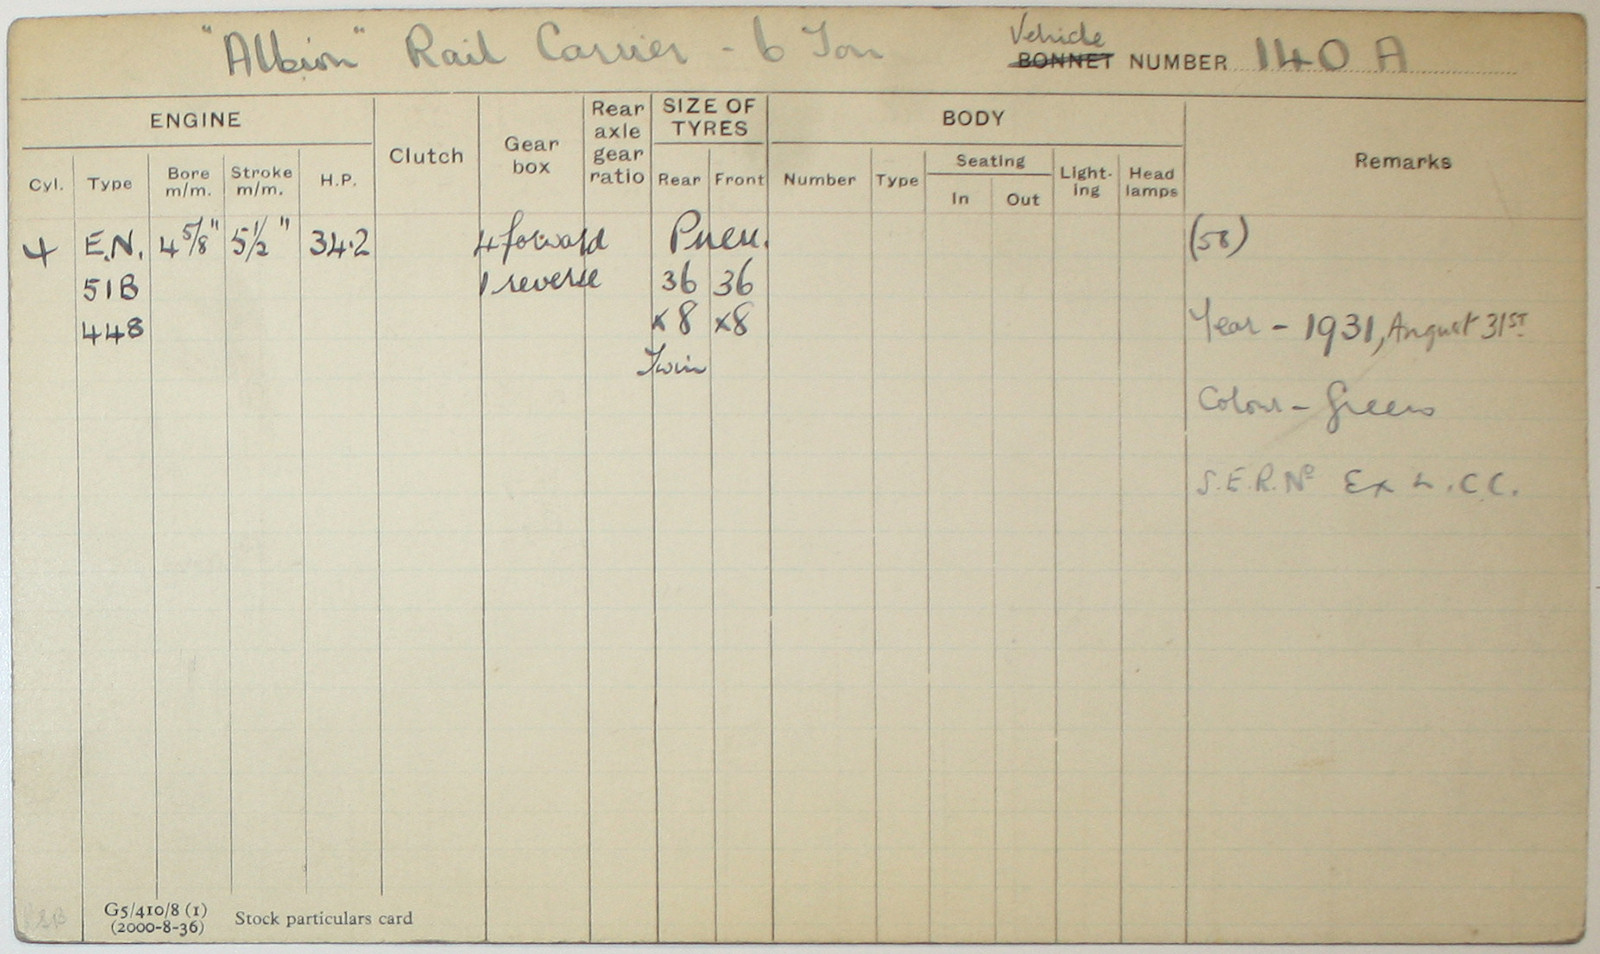 "Albion" Rail Carrier - 6 Ton Vehicle
BONNET NUMBER 140 A
ENGINE Clutch Gear box Rear axle gear ratio SIZE OF TYRES BODY Remarks
Cyl. Type Bore m/m. Stroke m/m. H.P. Rear Front Number Type Seating In Out Light-ing Head lamps
4 E.N. 4 5/8" 5 1/2" 34.2 4 forward Pneu. (58)
51B 1 reverse 36 36
448 x8 x8 Year - 1931, August 31ST
Twin
Colour - Green
S.E.R. No Ex L.C.C.
G5/410/8 (1)
(2000-8-36) Stock particulars card